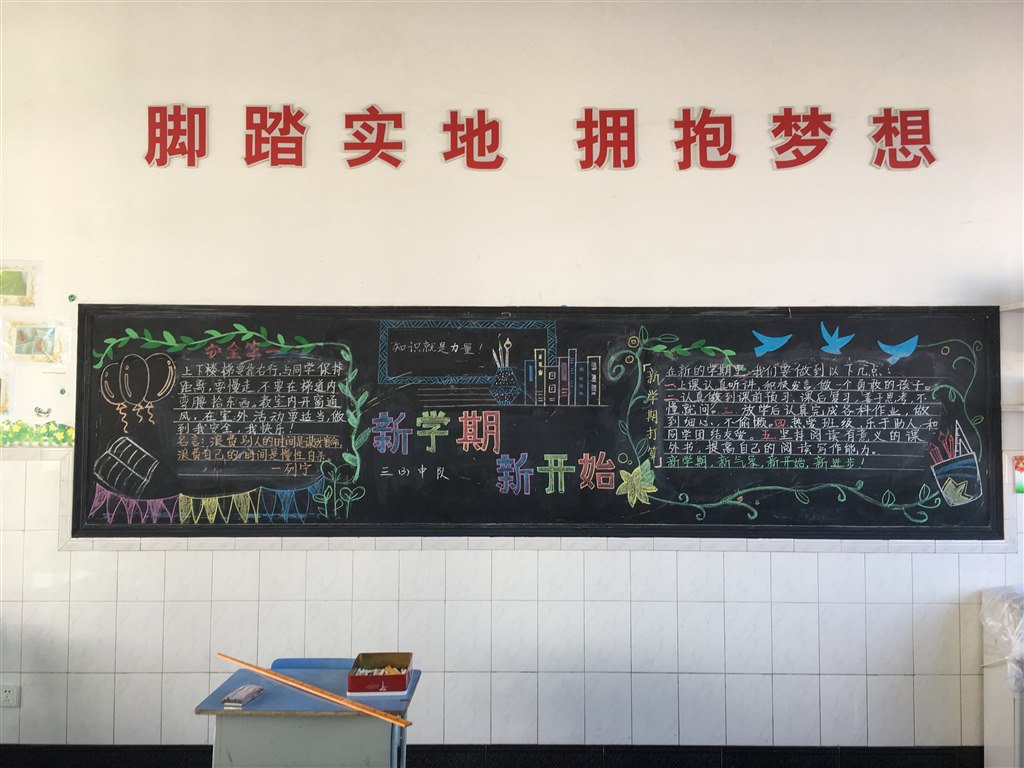 脚踏实地 拥抱梦想
安全第一
上下楼梯要靠右行,与同学保持
距离,要慢走,不要在梯道内
弯腰拾东西,教室内开窗通
风,在室外活动要适当做
到我安全,我快乐!
名言:浪费别人的时间是谋财害命,
浪费自己的时间是慢性自杀
—列宁
知识就是力量!
新学期
三(3)中队
新开始
新学期打算
在新的学期里,我们要做到以下几点:
一上课认真听讲,积极发言,做一个勇敢的孩子。
二认真做到课前预习,课后复习,善于思考,不
懂就问。三 放学后认真完成各科作业,做
到细心,不偷懒。四热爱班级,乐于助人,和
同学团结友爱。五坚持阅读有意义的课
外书,提高自己的阅读写作能力。
新学期,新气象,新开始,新进步!